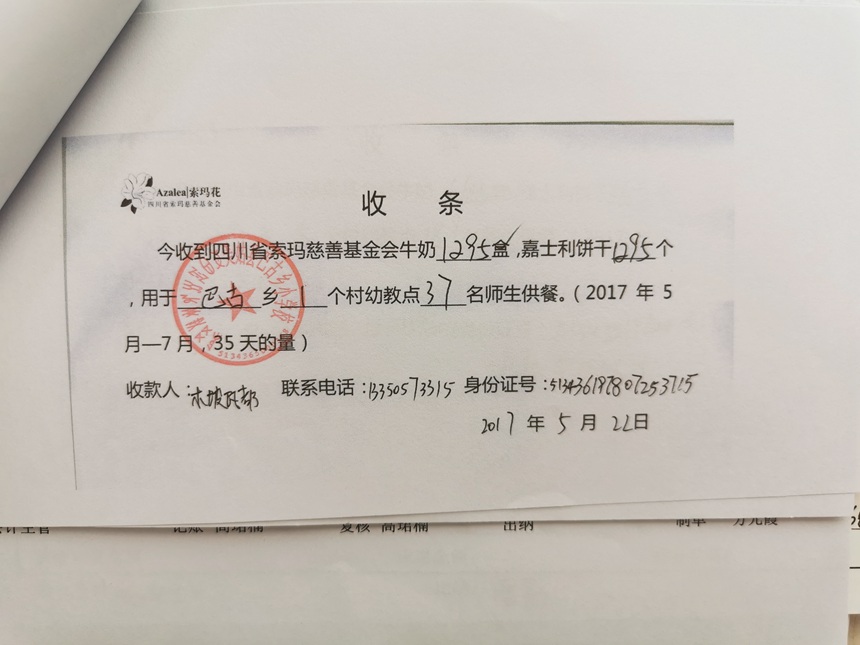 Azalea|索玛花
四川省索玛慈善基金会
收 条
今收到四川省索玛慈善基金会牛奶1295盒,嘉士利饼干1295个
,用于 巴古 乡 1 个村幼教点 37 名师生供餐。(2017 年 5
月—7 月，35 天的量)
收款人: 联系电话:13350573315 身份证号:513436197807253715
2017 年 5 月 22日
记账 高珺楠 复核 高珺楠 出纳 制单 万元霞